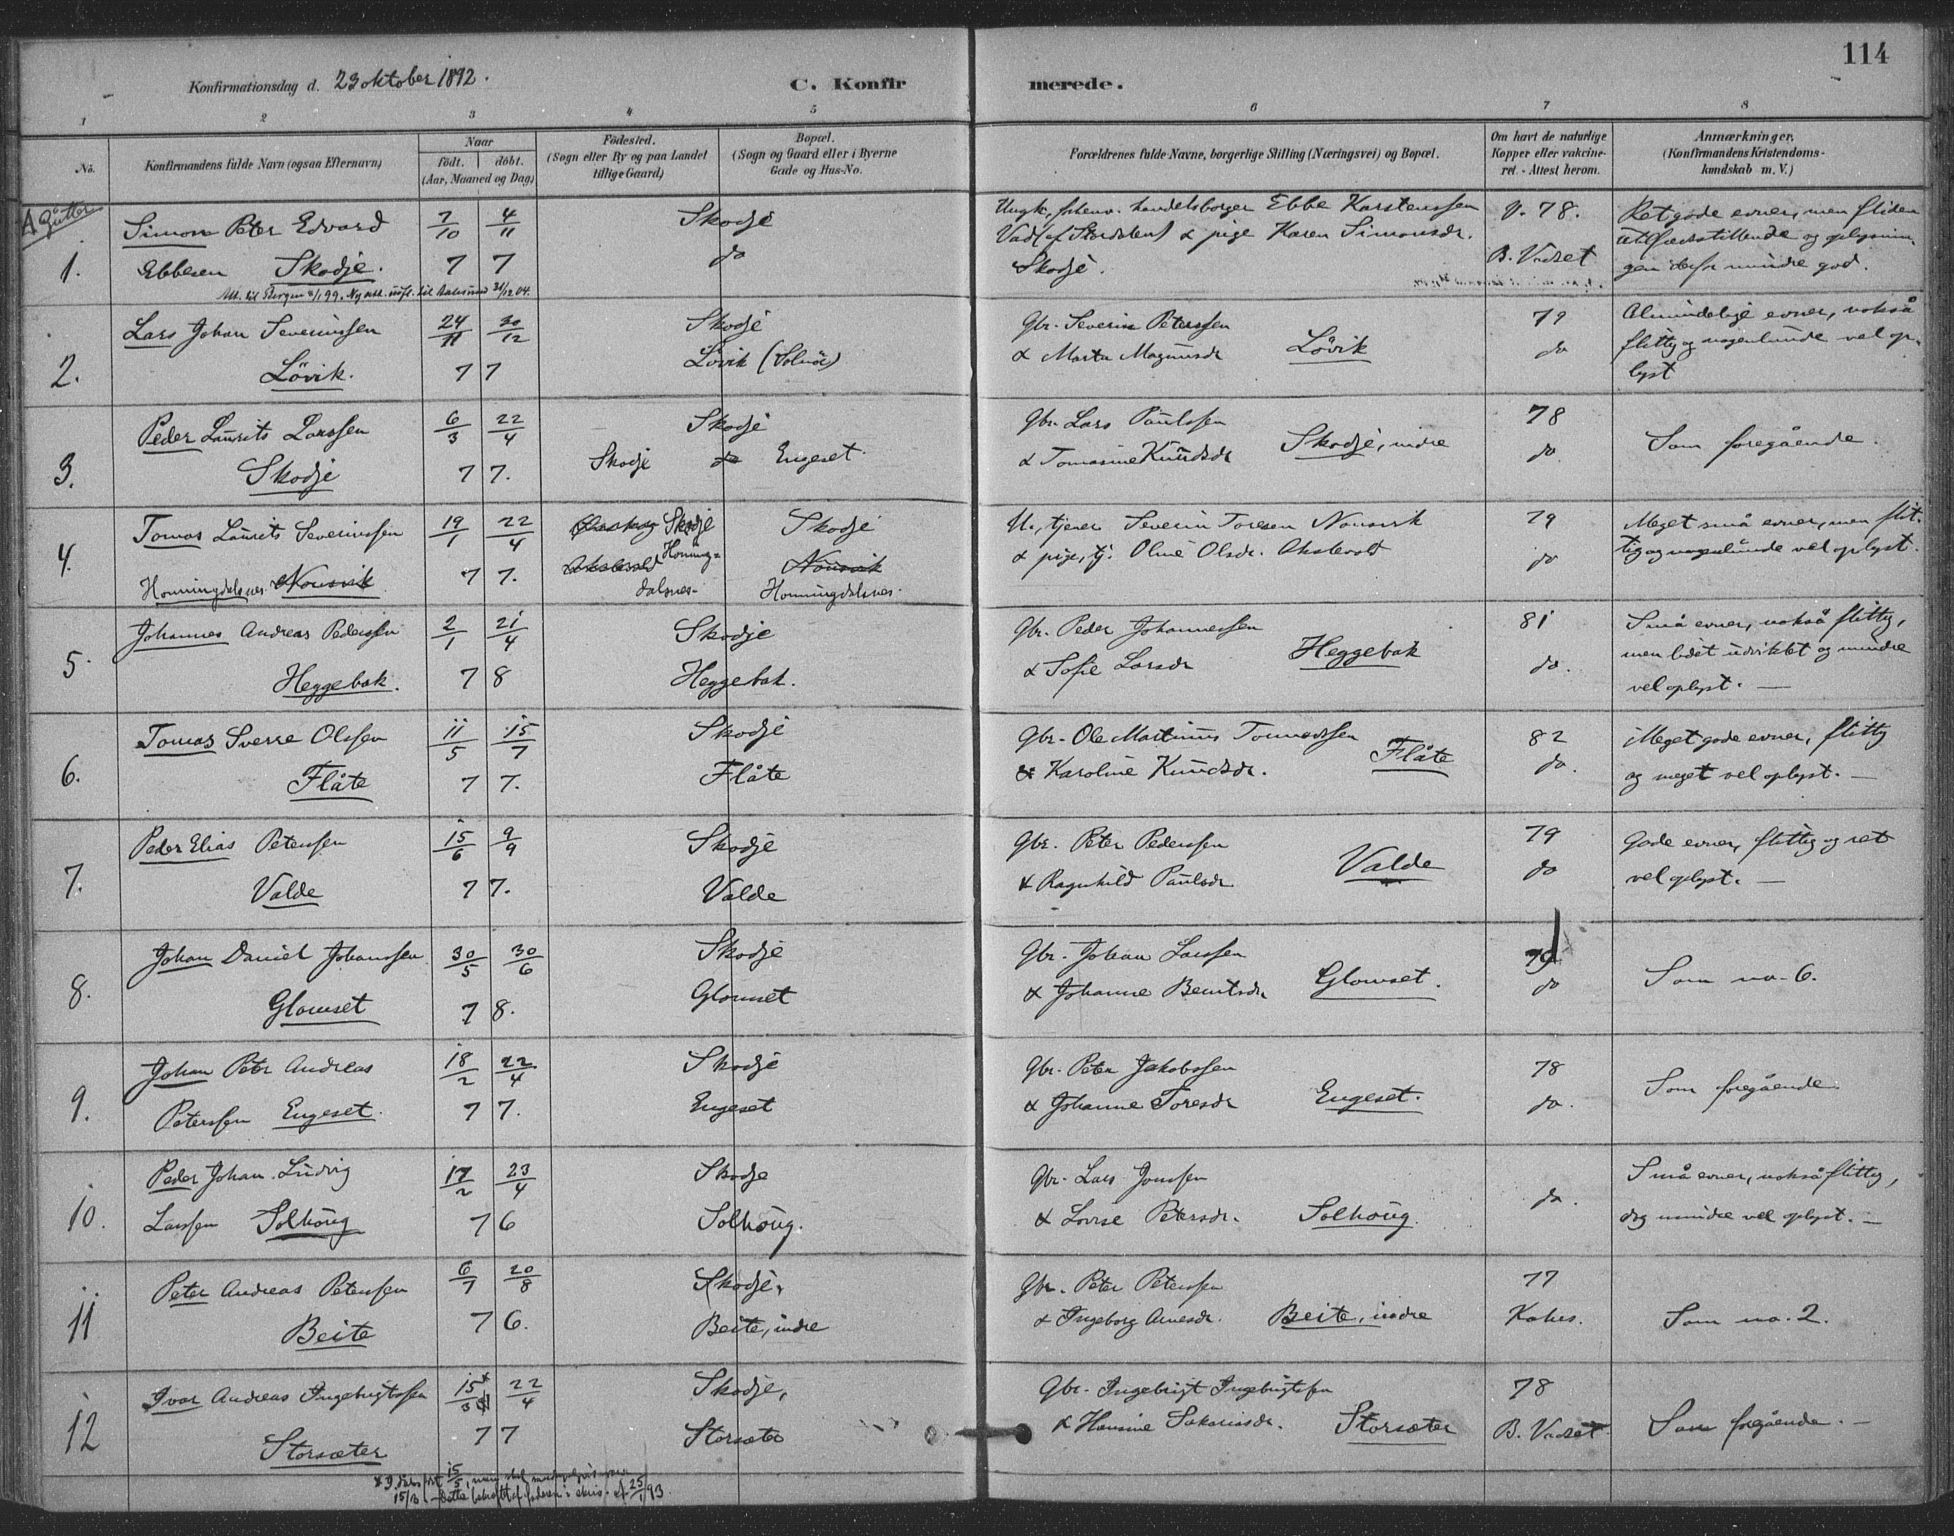 114
Konfirmationsdag d. 23 oktober 1892.
C. Konfirmerede.
1 2 3 4 5 6 7 8
No.
Konfirmandens fulde Navn (ogsaa Efternavn)
Naar
födt. döbt.
(Aar, Maaned og Dag)
Födested.
(Sogn eller By og paa Landet
tillige Gaard)
Bopæl.
(Sogn og Gaard eller i Byerne
Gade og Hus-No.
Forældrenes fulde Navne, borgerlige Stilling (Næringsvei) og Bopæl.
Om havt de naturlige
Kopper eller vakcine-
ret. - Attest herom.
Anmærkninger.
(Konfirmandens Kristendoms-
kundskab m. V.)
A Gutter
1. Simon Peter Edvard 7/10 4/11 Skodje
Ebbesen Skodje. 7 7 do
Ungk., handelsborger Ebbe Karstenssen
& pige Karen Simonsdr.
Skodje.
V. 78.
B. Vadset
Ret gode evner, men fliden
utilfredsstillende og oplysnin-
gen derfor mindre god.
2. Lars Johan Severinssen 24/11 30/12 Skodje
Lövik. 7 7 Lövik (Solnör)
Gbr. Severin Peterssen
& Marta Magnusdr Lövik
79
do
Almindelige evner, nokså
flittig og nogenlunde vel op-
lyst
3. Peder Laurits Larssen 6/3 22/4 Skodje
Skodje 7 7. Skodje do Engeset.
Gbr. Lars Paulssen
& Tomasine Knudsdr Skodje, indre
78
do.
Som foregående.
4. Tomas Laurits Severinssen 19/1 22/4 Skodje Skodje
Honningdalsnes. Nonsvik 7 7. Akslevold Honning-
dalsnes- Nonsvik
Honningdalsnes.
U., tjener Severin Toresen Nonsvik
& pige, tj. Oline Olsdr. Akslevold
79
do
Meget små evner, men flit-
tig og nogenlunde vel oplyst.
5. Johannes Andreas Pederssen 2/1 21/4 Skodje
Heggebak. 7 8 Heggebak.
Gbr. Peder Johannessen
& Sofie Larsdr Heggebak
81
do.
Små evner, nokså flittig,
men lidet udviklet og mindre
vel oplyst. —
6. Tomas Sverre Olssen 11/5 15/7 Skodje
Flåte 7 7. Flåte
Gbr. Ole Martinus Tomassen
& Karoline Knudsdr. Flåte
82
do.
Meget gode evner, flittig
og meget vel oplyst. —
7. Peder Elias Peterssen 15/6 9/9 Skodje
Valde 7 7. Valde
Gbr. Peter Pederssen
& Ragnhild Paulsdr Valde
79
do
Gode evner, flittig og ret
vel oplyst. —
8. Johan Daniel Johanssen 30/5 30/6 Skodje
Glomset 7 8. Glomset
Gbr. Johan Larssen
& Johanne Berntsdr Glomset.
79
do
Som no. 6.
9. Johan Peter Andreas 18/2 22/4 Skodje
Peterssen Engeset. 7 7. Engeset
Gbr. Peter Jakobssen
& Johanne Toresdr Engeset.
78
do.
Som foregående
10. Peder Johan Ludvig 17/2 23/4 Skodje
Larssen Solhöug 7 6 Solhöug.
Gbr. Lars Jonssen
& Lovise Petersdr. Solhöug.
do.
Små evner, nokså flittig,
dog mindre vel oplyst. —
11 Peter Andreas Peterssen 6/7 20/8 Skodje,
Beite 7 6. Beite, indre
Gbr. Peter Peterssen
& Ingeborg Arnesdr. Beite, indre
77
Kohes.
Som no. 2.
12 Ivar Andreas Ingebrigtssen 15/3 22/4 Skodje,
Storsæter 7 7 Storsæter
Gbr. Ingebrigt Ingebrigtssen
& Hansine Sakariasdr. Storsæter
78
B. Vadset
Som foregående. —
15/3. — Dette af faderen 25/1 93